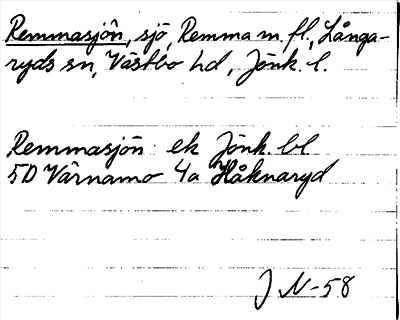 Remmasjön, sjö, Remma m. fl., Långa-
ryds sn, Västbo hd, Jönk. l.
Remmasjön ek Jönk. bl
5D Värnamo 4a Håknaryd
J N-58